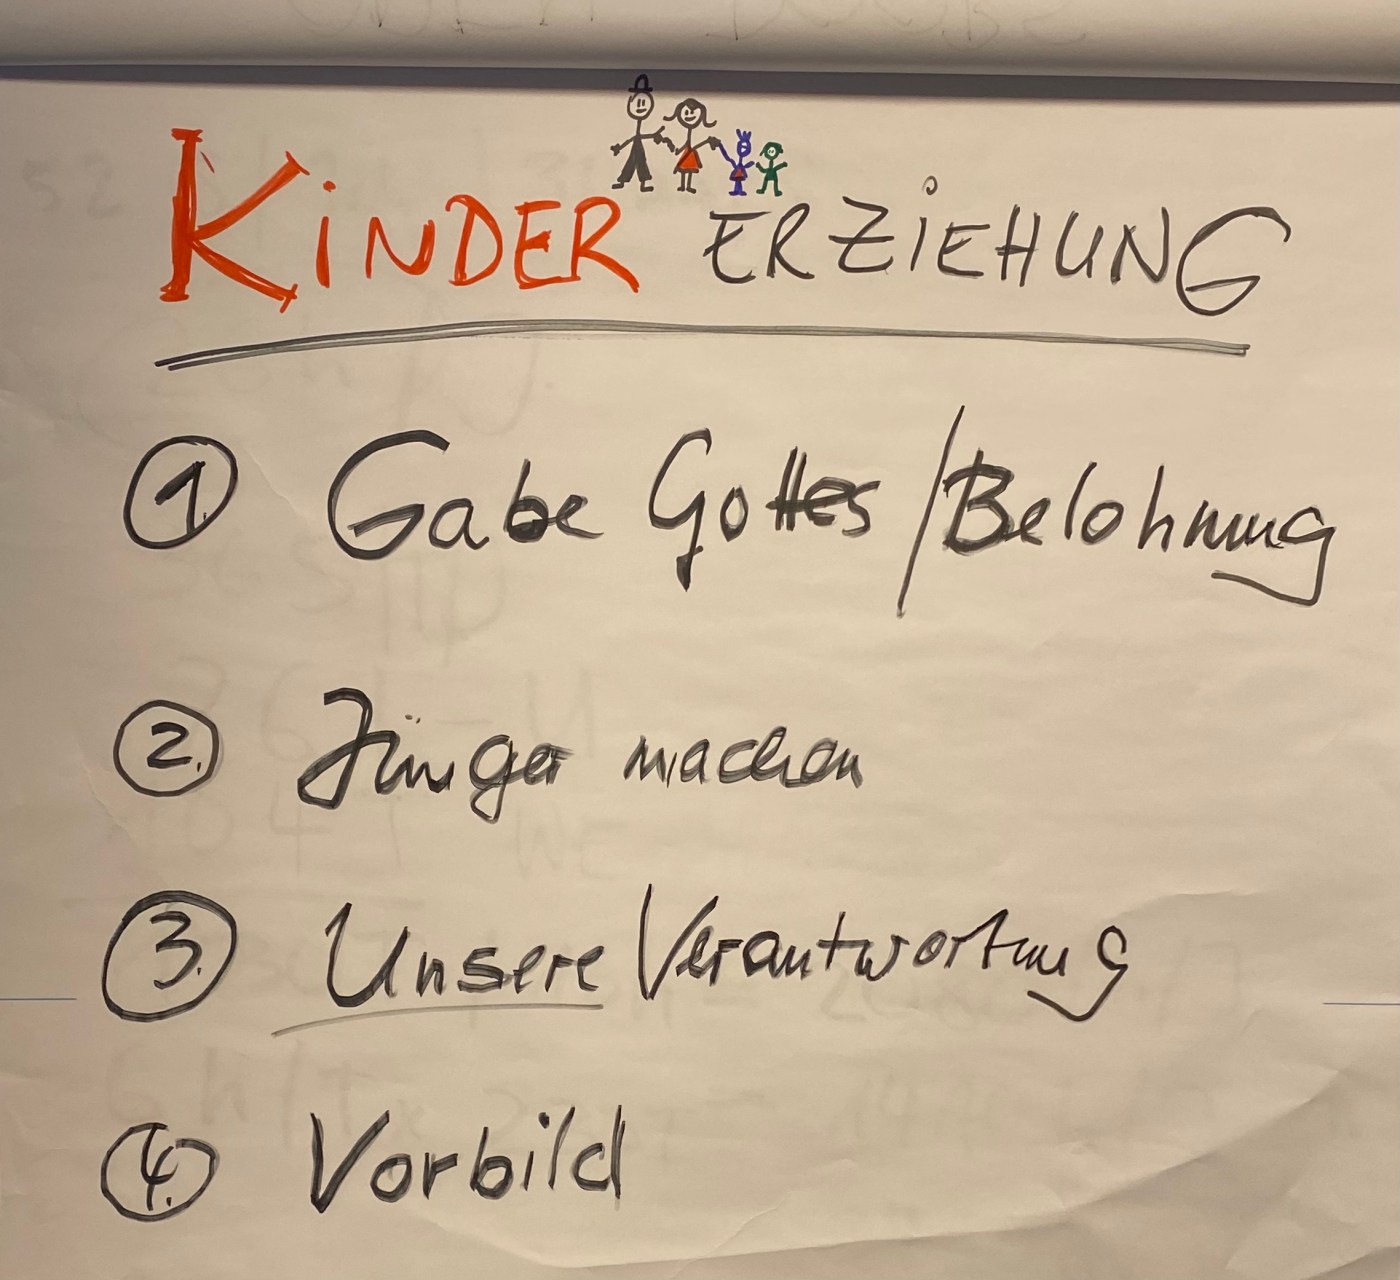 KINDER ERZIEHUNG
1. Gabe Gottes / Belohnung
2. Jünger machen
3. Unsere Verantwortung
4. Vorbild